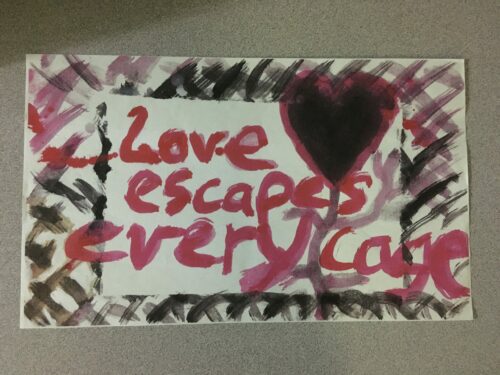 Love
escapes
every cage